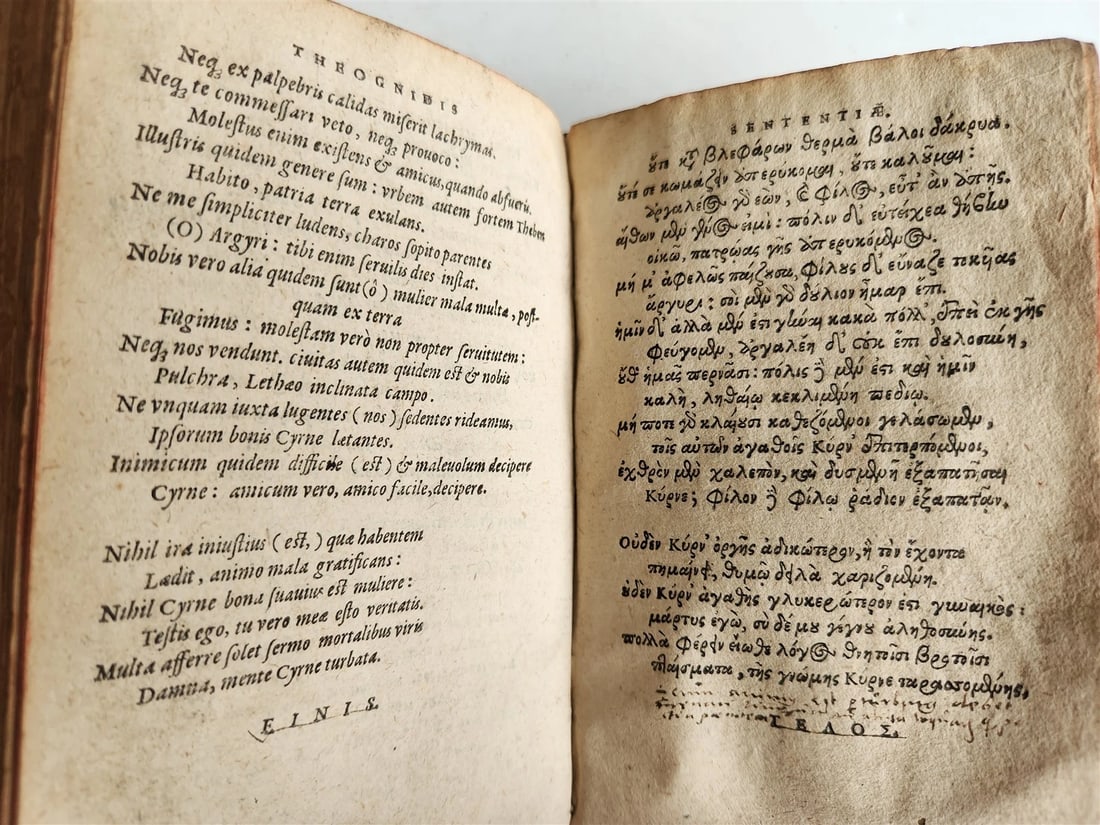 THEOGNIDIS
Neq; ex palpebris calidas miserit lachrymas.
Neq; te commessari veto, neq; prouoco:
Molestus enim existens & amicus, quando abfueris.
Illustris quidem genere sum: vrbem autem fortem Theben
Habito, patria terra exulans.
Ne me simpliciter ludens, charos sopito parentes
(O) Argyri: tibi enim seruilis dies instat.
Nobis vero alia quidem sunt (ô) mulier mala multa, post-
quam ex terra
Fugimus: molestam verò non propter seruitutem:
Neq; nos vendunt. ciuitas autem quidem est & nobis
Pulchra, Lethæo inclinata campo.
Ne vnquam iuxta lugentes (nos) sedentes rideamus,
Ipsorum bonis Cyrne lætantes.
Inimicum quidem difficile (est) & maleuolum decipere
Cyrne: amicum vero, amico facile, decipere.
Nihil ira iniustius (est,) quæ habentem
Lædit, animo mala gratificans:
Nihil Cyrne bona suauius est muliere:
Testis ego, tu vero meæ esto veritatis.
Multa afferre solet sermo mortalibus viris
Damna, mente Cyrne turbata.
FINIS.
SENTENTIÆ.
ὔτε κτ̀ βλεφάρων θερμὰ βάλοι δάκρυα.
ὔτέ σε κωμάζειν ἀπερύκομαι, ὔτε καλῦμαι:
ἀργαλέος γὸ ἐὼν, & φίλος, εὖτ' ἂν ἀπῇς.
αἴθων μὲν γένος εἰμί: πόλιν δ' εὐτείχεα θήβην
οἰκῶ, πατρῴας γῆς ἀπερυκόμενος.
μή μ' ἀφελῶς παίζυσα, φίλυς δ' εὔναζε τοκῆας
ἄργυρι: σοὶ μὲν γὸ δύλιον ἦμαρ ἔπι.
ἡμῖν δ' ἄλλα μέν ἐστι γύναι κακὰ πόλλ', ἐπεὶ ἐκ γῆς
φεύγομεν, ἀργαλέη δ' ὐκ ἔπι δυλοσύνη,
ὔθ' ἡμᾶς περνᾶσι: πόλις ὃ μέν ἐστι καὶ ἡμῖν
καλὴ, ληθαίῳ κεκλιμένη πεδίῳ.
μή ποτε γὸ κλαίυσι καθεζόμενοι γελάσωμεν,
τοῖς αὐτῶν ἀγαθοῖς Κύρν' ἐπιτερπόμενοι,
ἐχθρὸν μὲν χαλεπὸν, καὶ δυσμενῆ ἐξαπατῆσαι
Κύρνε; φίλον ὃ φίλῳ ῥᾴδιον ἐξαπατᾷν.
Οὐδὲν Κύρν' ὀργῆς ἀδικώτερον, ἣ τὸν ἔχοντα
πημαίνει, θυμῷ δειλὰ χαριζομένη.
ὐδὲν Κύρν' ἀγαθῆς γλυκερώτερόν ἐστι γυναικός:
μάρτυς ἐγὼ, σὺ δέ μυ γίγνυ ἀληθοσύνης.
πολλὰ φέρειν εἴωθε λόγος θνητοῖσι βροτοῖσι
πταίσματα, τῆς γνώμης Κύρνε ταρασσομένης,
ΤΕΛΟΣ.